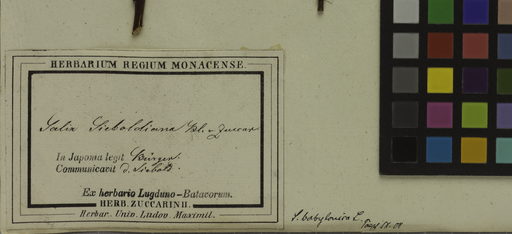 HERBARIUM REGIUM MONACENSE.
Salix Sieboldiana Bl. & Zuccar.
In Japonia legit Bürger.
Communicavit d. Siebold.
Ex herbario Lugduno-Batavorum.
HERB. ZUCCARINII.
Herbar. Univ. Ludov. Maximil.
S. babylonica L.